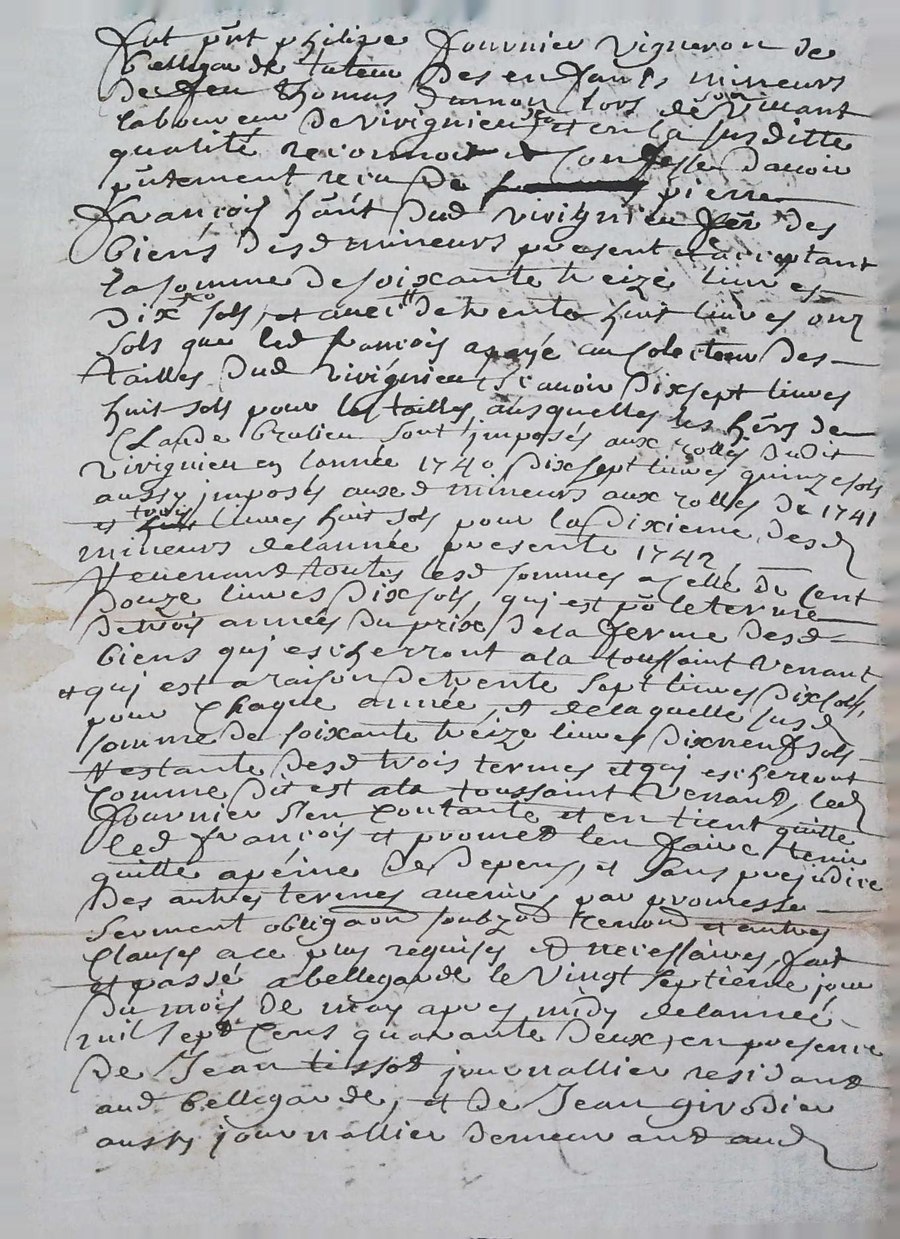 fut pnt philipe fournier vigneron de
bellegarde tuteur des enfants mineurs
de feu thomas lors de son vivant
laboureur de vivignieu et en la susditte
qualité reconnoit et confesse d'avoir
pntement receu de pierre
françois hant dud vivignieu fer des
biens desd mineurs present et acceptant
la somme de soixante treize livres
dix sols, et avec de trente huit livres onz
sols que led françois a payé au colecteur des
tailles dud vivignieu, scavoir dixsept livres
huit sols pour les tailles ausquelles les hers de
Claude bralieu sont imposés aux rolles dudit
vivignieu en lannée 1740 dixsept livres quinze sols
aussy imposés auxd mineurs aux rolles de 1741
et trois livres huit sols pour la dixieme desd
mineurs delannée presente 1742
Revenand toutes lesd sommes a celle de cent
douze livres dix sols, qui est po le terme
de trois années du prix de la ferme desd
biens qui escherront a la toussaint venant
qui est a raison de trente sept livres dix sols,
pour chaque année, et de laquelle susd
somme de soixante treize livres dixneuf sols
Restante desd trois termes et qui escherront
comme dit est a la toussaint venand, led
fournier s'en contante et en tient quitte
led françois et promet len faire tenir
quitte apeine de depens, et sans prejudice
des autres termes avenirs par promesse
serment obligaon soubzon renon et autres
clauses a ce plus requises et necessaires, fait
et passé a bellegarde le vingt septieme jour
du mois de may apres midy delannée
mil sept cens quarante deux, en presence
de Jean tissot journallier residand
aud bellegarde, et de Jean girodier
aussy journallier demeurand aud